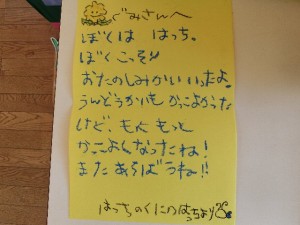 ぐみさんへ
ぼくは はっち。
ぼくこっそり
おたのしみかいいったよ。
うんどうかいもかっこよかった
けど、もっともっと
かっこよくなったね!
またあそぼうね!!
はっちのくにのはっちより